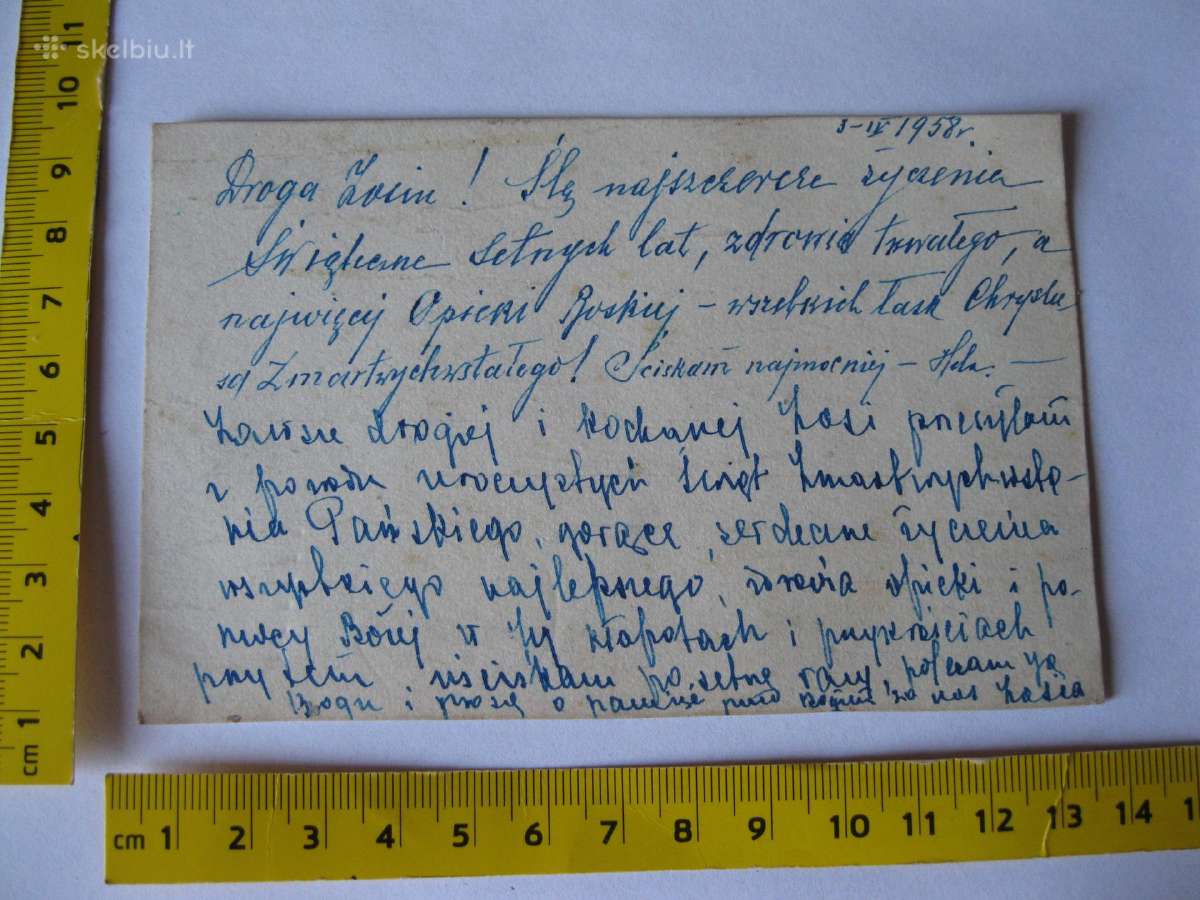 skelbiu.lt
3-IV 1958r.
Droga Zosiu! Ślę najszczersze życzenia
Świąteczne setnych lat, zdrowia trwałego, a
najwięcej Opieki Boskiej - wszelkich łask Chrystu-
sa Zmartwychwstałego! Ściskam najmocniej - Hela. -
Zawsze drogiej i kochanej Zosi przesyłam
z powodu uroczystych Świąt Zmartwychwsta-
nia Pańskiego, gorące, serdeczne życzenia
wszystkiego najlepszego, zdrowia opieki i po-
mocy Bożej w Jej kłopotach i przykrościach
przytem uściskam po setne razy, polecam Ją
Bogu i proszę o pamięć przed Bogiem za nas Zosia
cm 1 2 3 4 5 6 7 8 9 10 11
cm 1 2 3 4 5 6 7 8 9 10 11 12 13 14